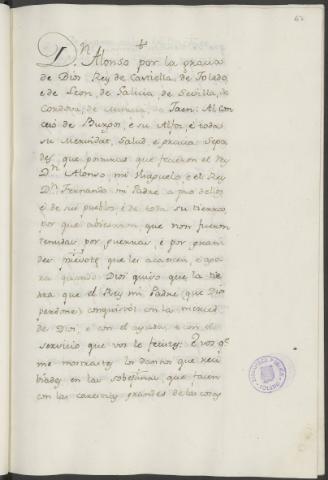 D.n Alonso por la gracia
de Dios Rey de Castiella, de Toledo,
e de Leon, de Galicia, de Sevilla, de
Cordova, de Murcia, de Jaen: Al Con
cejo de Burgos, e su Alfoz, e toda
su Merindat, Salud, e gracia. Sepa
des, que posturas que ficieron el Rey
D.n Alonso, mi Visguelo e el Rey
D.n Fernando mi Padre a pro dellos,
e de sus pueblos e de toda su tierra,
por que abiessen que non fueron
tenudas por guerras, e por gran
des priesas que les acaecen, e ago
ra quando Dios quiso que la tie
rra que el Rey mi Padre (que Dios
perdone) conquirió con la merced
de Dios, e con el ayuda, e con el
servicio que vos le feciestes: E vos q.e
me mostrastes los daños que reci
biades en las sobejanias, que facen
con las carestias grandes de las cosas